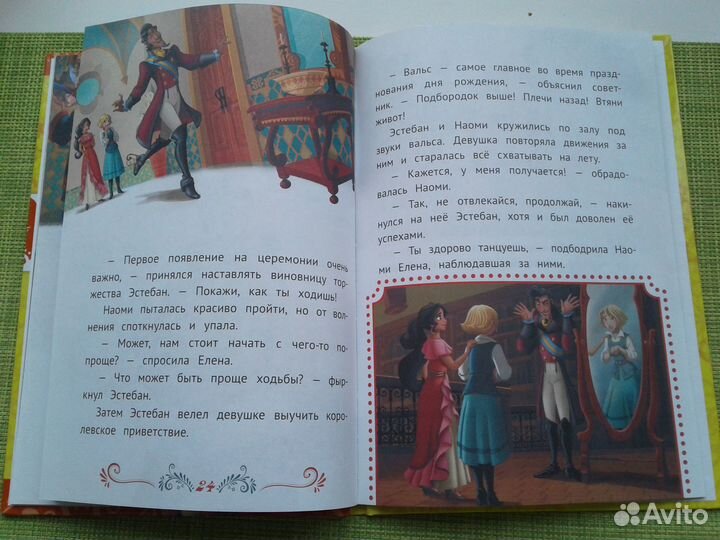 — Первое появление на церемонии очень
важно, — принялся наставлять виновницу тор-
жества Эстебан. — Покажи, как ты ходишь!
Наоми пыталась красиво пройти, но от вол-
нения споткнулась и упала.
— Может, нам стоит начать с чего-то по-
проще? — спросила Елена.
— Что может быть проще ходьбы? — фыр-
кнул Эстебан.
Затем Эстебан велел девушке выучить коро-
левское приветствие.
24
— Вальс — самое главное во время празд-
нования дня рождения, — объяснил совет-
ник. — Подбородок выше! Плечи назад! Втяни
живот!
Эстебан и Наоми кружились по залу под
звуки вальса. Девушка повторяла движения за
ним и старалась всё схватывать на лету.
— Кажется, у меня получается! — обрадо-
валась Наоми.
— Так, не отвлекайся, продолжай, — наки-
нулся на неё Эстебан, хотя и был доволен её
успехами.
— Ты здорово танцуешь, — подбодрила Нао-
ми Елена, наблюдавшая за ними.
Avito